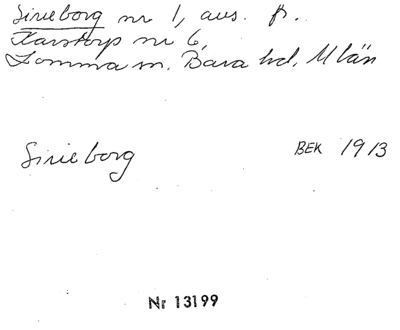 Sireborg nr 1, avs. fr.
Karstorp nr 6,
Lomma sn. Bara hd. M län
Sireborg
BEK 1913
Nr 13199